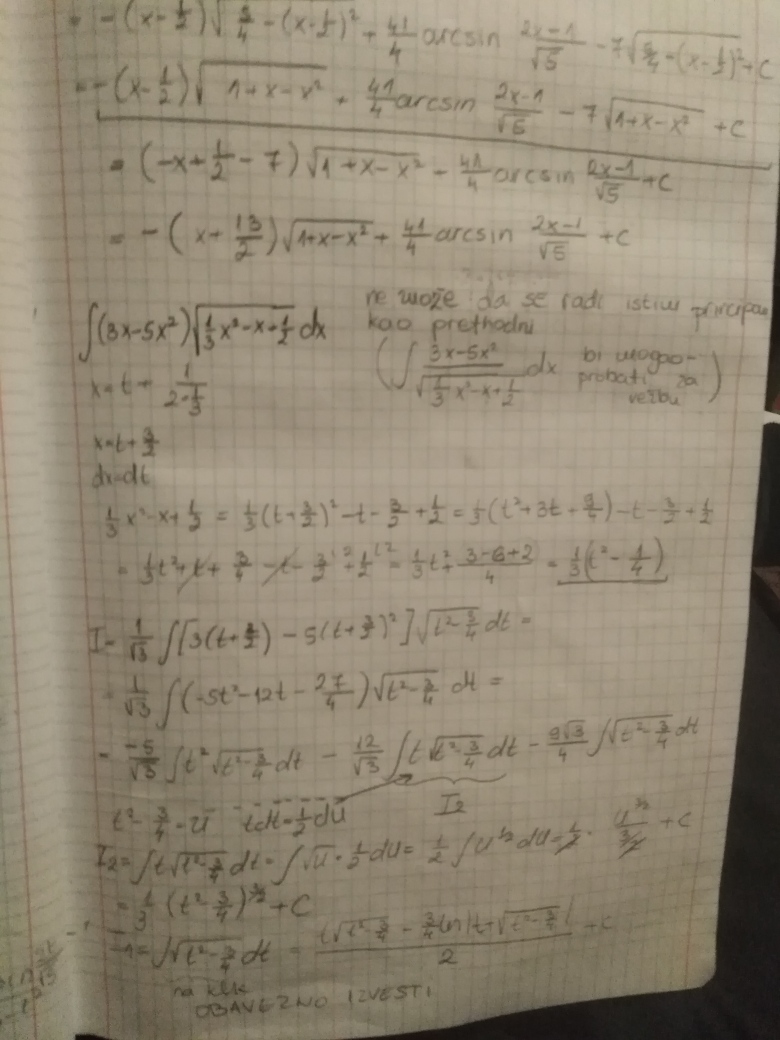 = -(x-1/2)√(5/4-(x-1/2)²) + 41/4 arcsin (2x-1)/√5 - 7√(5/4-(x-1/2)²) + C
= -(x-1/2)√(1+x-x²) + 41/4 arcsin (2x-1)/√5 - 7√(1+x-x²) + C
= (-x+1/2-7)√(1+x-x²) - 41/4 arcsin (2x-1)/√5 + C
= -(x+13/2)√(1+x-x²) + 41/4 arcsin (2x-1)/√5 + C
∫(3x-5x²)√(1/3 x²-x+1/2) dx
ne može da se radi istim principom
kao prethodni
(∫ (3x-5x²)/√(1/3 x²-x+1/2) dx bi mogao-
probati za
vežbu)
x=t+ 1/(2·1/3)
x=t+3/2
dx=dt
1/3 x²-x+1/2 = 1/3(t+3/2)²-t-3/2+1/2 = 1/3(t²+3t+9/4)-t-3/2+1/2
= 1/3t²+t+3/4-t-3/2+1/2 = 1/3t²+ (3-6+2)/4 = 1/3(t²-1/4)
I= 1/√3 ∫[3(t+3/2)-5(t+3/2)²]√(t²-3/4) dt =
= 1/√3 ∫(-5t²-12t-27/4)√(t²-3/4) dt =
= -5/√3 ∫t²√(t²-3/4) dt - 12/√3 ∫t√(t²-3/4) dt - 9√3/4 ∫√(t²-3/4) dt
I2
t²-3/4=u tdt=1/2du
I2=∫t√(t²-3/4) dt=∫√u·1/2du= 1/2∫u^(1/2)du=1/2· u^(3/2)/(3/2) + C
= 1/3 (t²-3/4)^(3/2)+C
=∫√(t²-3/4) dt = (t√(t²-3/4) - 3/4 ln|t+√(t²-3/4)|)/2 + C
na klk
OBAVEZNO IZVESTI